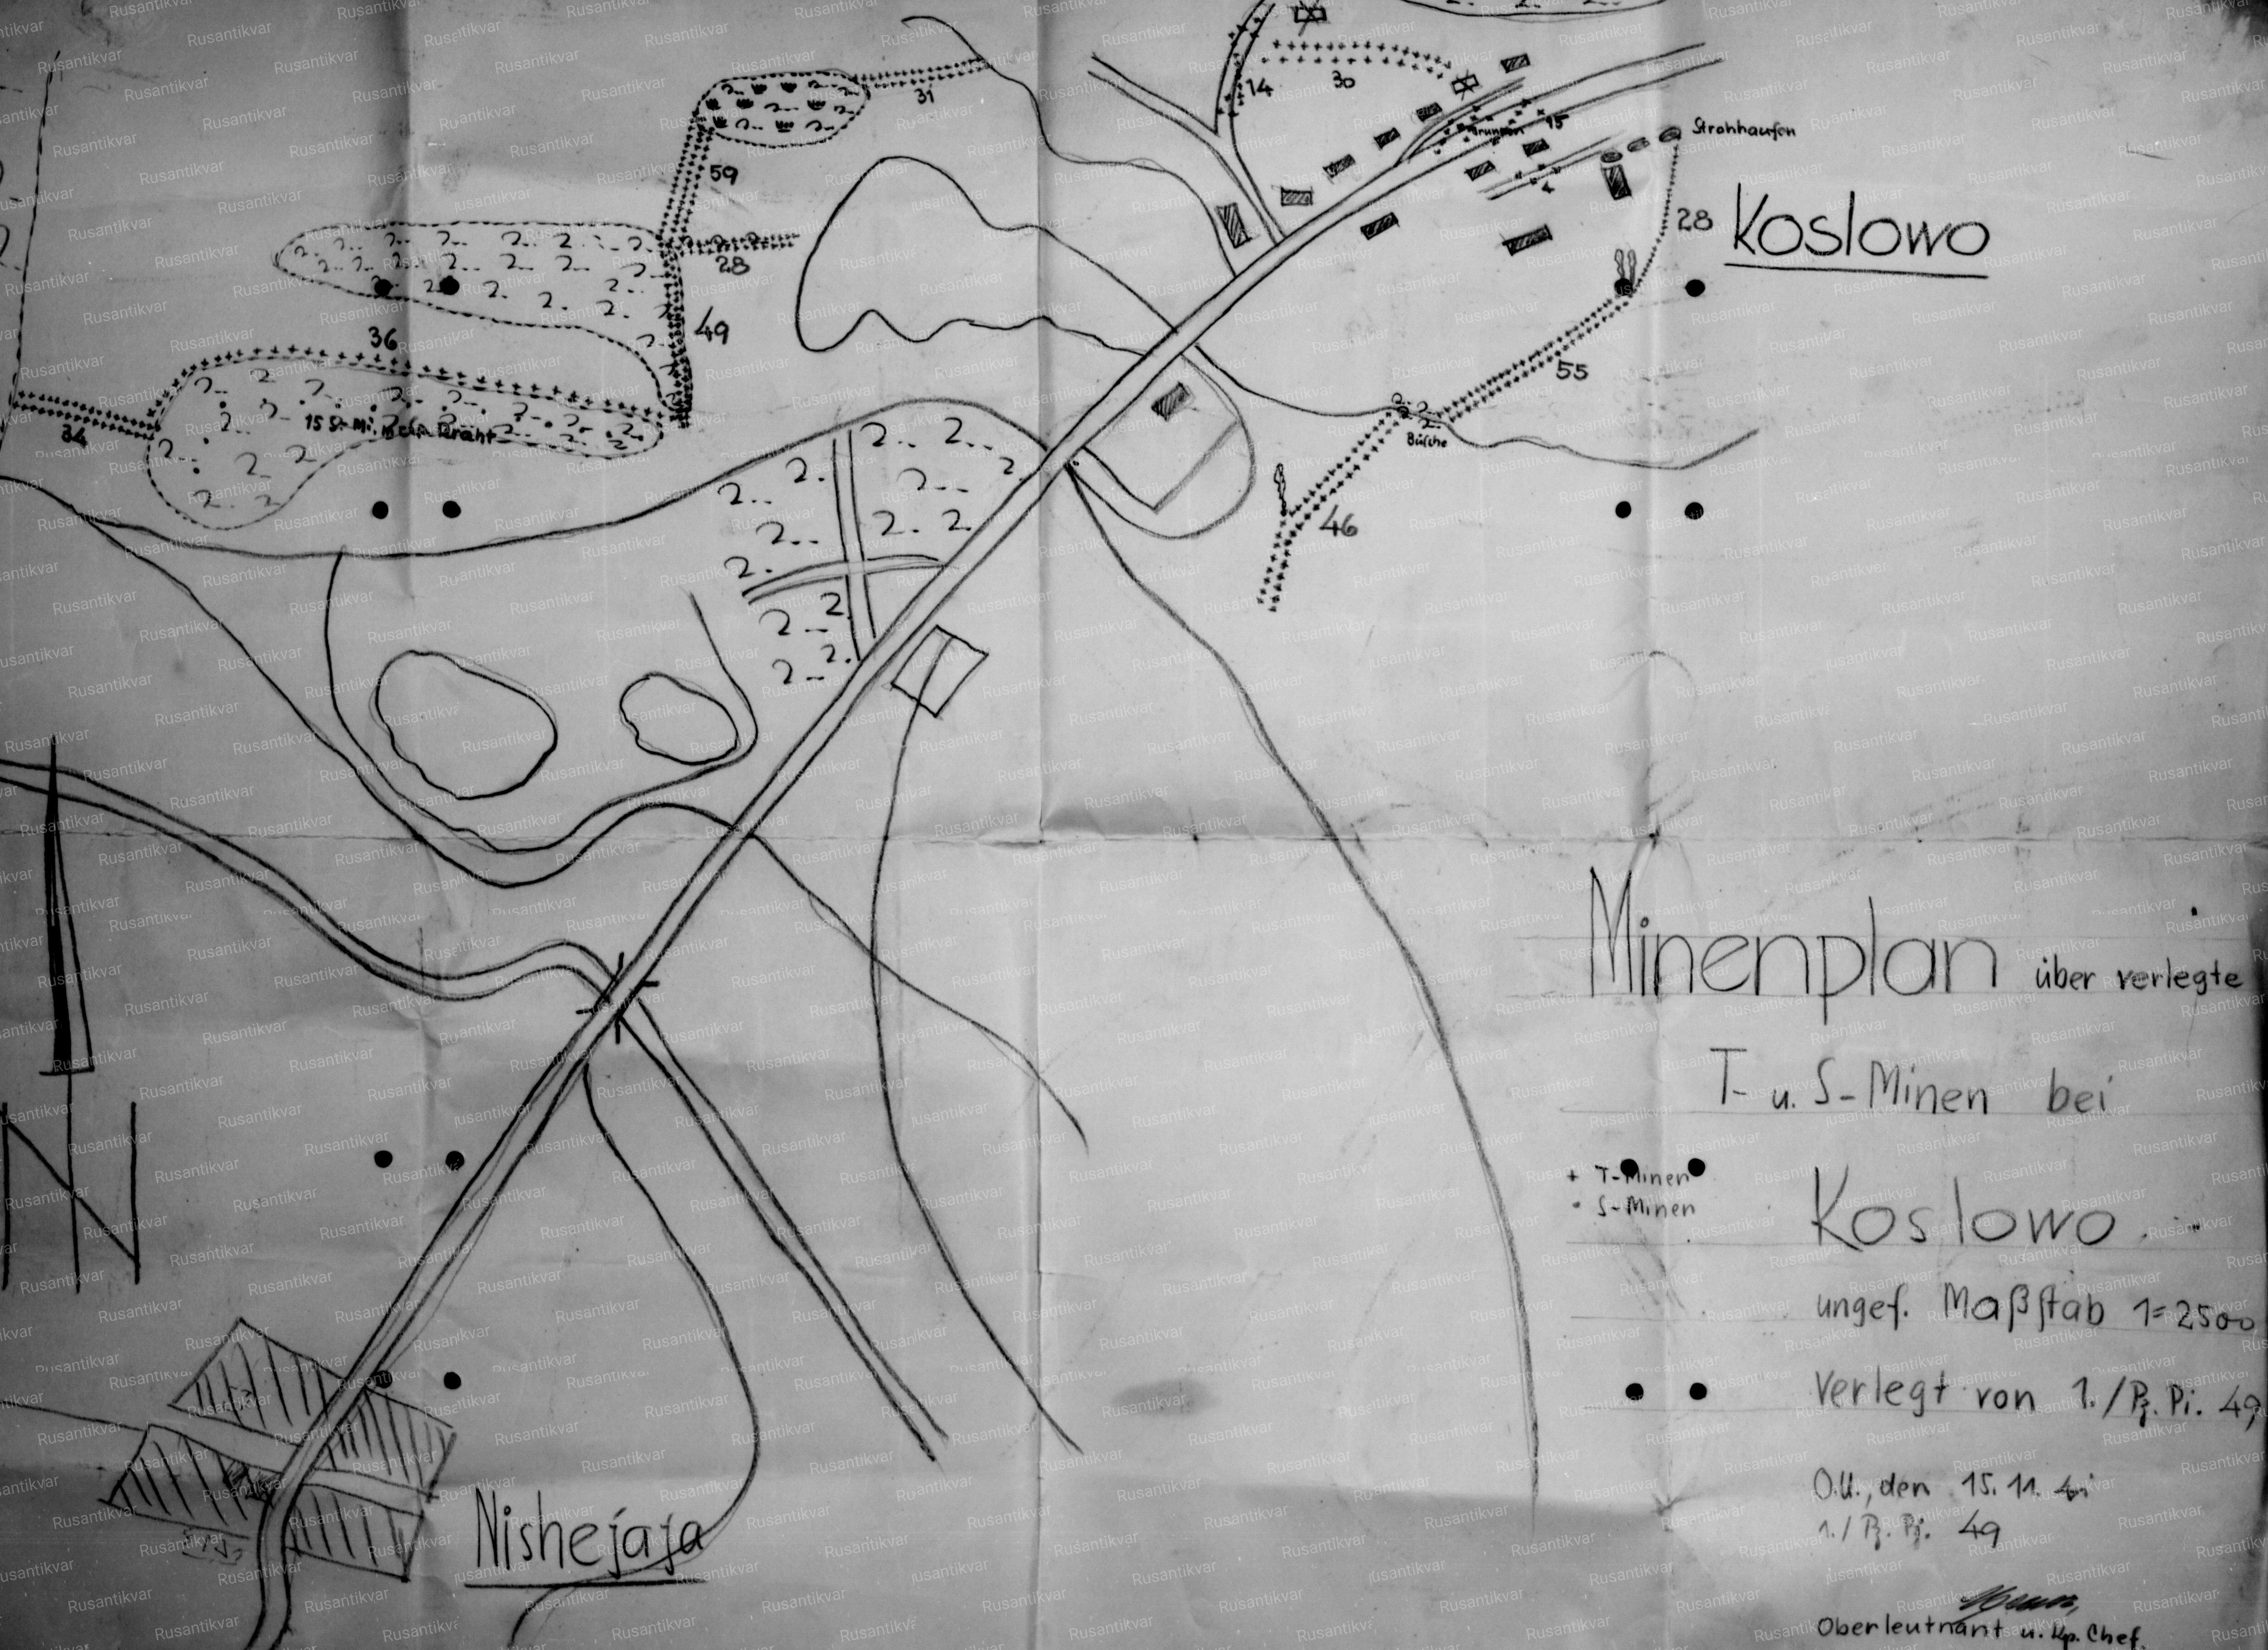 14
30
31
59
28
49
36
34
15 S-Mi.
Draht
15
Strohhaufen
28
Koslowo
55
Büsche
46
Minenplan über verlegte
T- u. S-Minen bei
+ T-Minen
• S-Minen
Koslowo
ungef. Maßstab 1=2500
Verlegt von 1./Pz. Pi. 49
O.U., den 15. 11.
1./Pz. Pi. 49
Oberleutnant u. Kp. Chef
Nishejaja
N
Rusantikvar